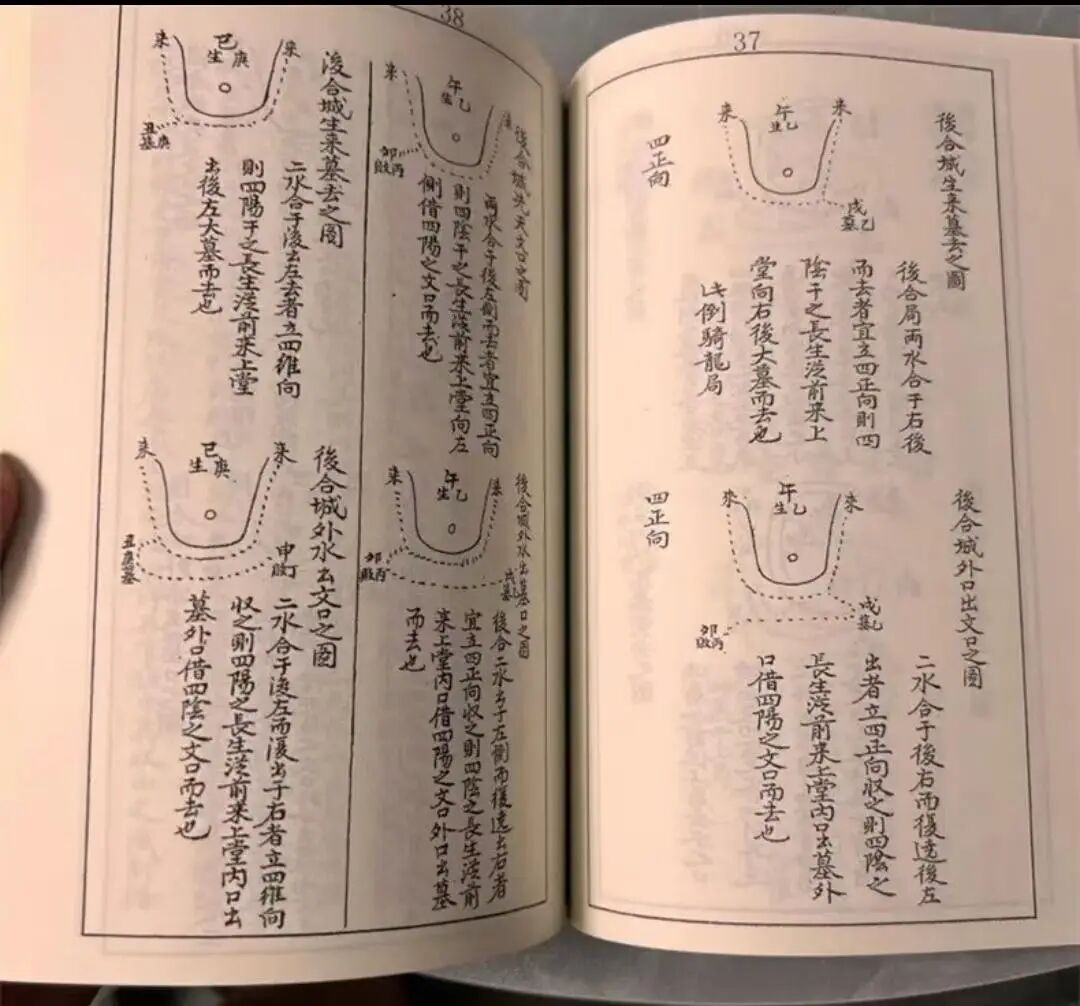 37
後合城生来墓去之圖
来
午
生乙
来
戌
墓乙
四正向
後合局兩水合于右後
而去者宜立四正向則四
陰干之長生從前来上
堂向右後大墓而去也
此倒騎龍局
後合城外口出文口之圖
来
午
生乙
来
戌
墓乙
卯
敗丙
四正向
二水合于後右而復遶後左
出者立四正向収之則四陰之
長生從前来上堂內口出墓外
口借四陽之文口而去也
38
来
午
生乙
卯
敗丙
兩水合于後左側而去者宜立四正向
則四陰干之長生從前来上堂向左
側借四陽之文口而去也
後合城外水出墓口之圖
来
午
生乙
来
卯
敗丙
戌
墓乙
後合二水出于左側而復遶出右者
宜立四正向収之則四陰之長生從前
来上堂內口借四陽之文口外口出墓
而去也
後合城生来墓去之圖
来
巳
生庚
来
丑
墓庚
二水合于後出左去者立四維向
則四陽干之長生從前来上堂
出後左大墓而去也
後合城外水出文口之圖
来
巳
生庚
来
丑庚墓
申
敗丁
二水合于後左而復出于右者立四維向
収之則四陽之長生從前来上堂內口出
墓外口借四陰之文口而去也